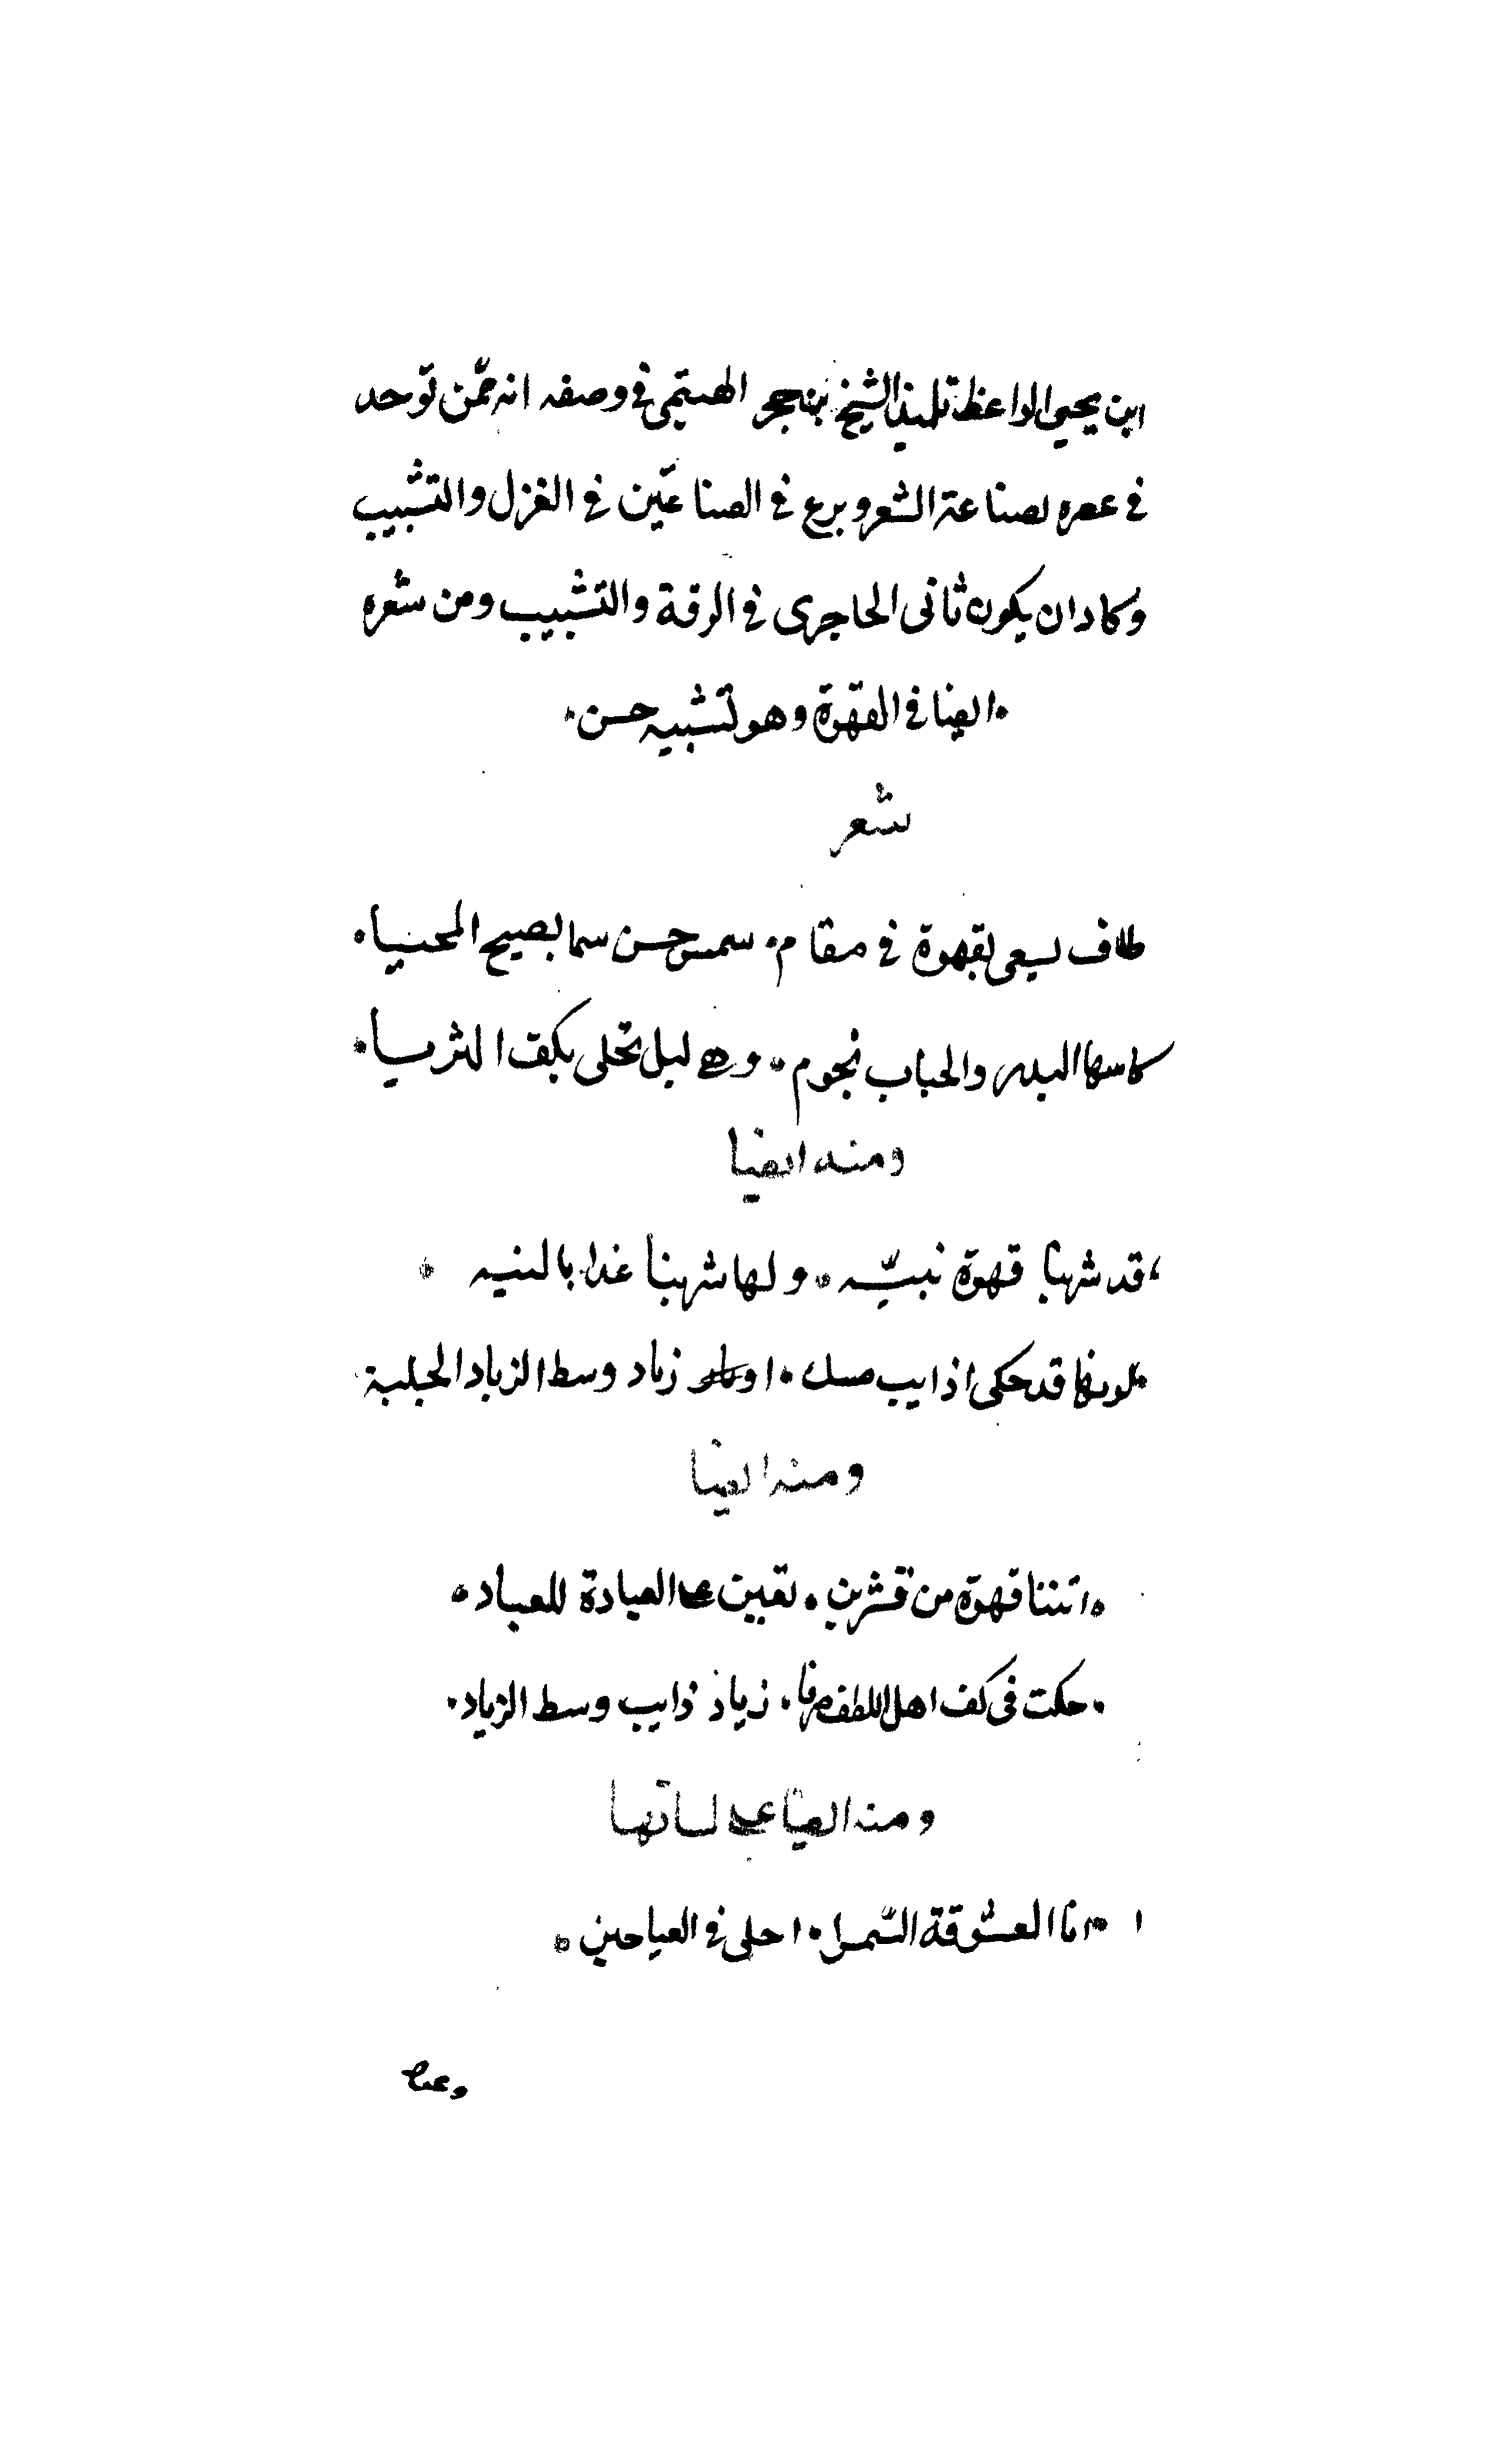 ابن يحيى الواعظ تلميذ الشيخ بن حجر الهيتمى فى وصفه انه ممّن توحد
فى عصره بصناعة الشعر وبرع فى الصناعتين فى الغزل والتشبيب
وكاد ان يكون ثانى الحاجرى فى الرقة والتشبيب ومن شعره
ايضا فى القهوة وهو تشبيه حسن
شعر
طاف يسعى بقهوة فى مقام • شمس حسن سما بصبيح المحيا •
كاسها البدر والحباب نجوم • وهى ليل تجلى بكف الثريا •
ومنه ايضا
قد شربنا قهوة بنيّه • ولها شربنا غدا بالنيه •
لونها قد حكى اذايب مسك • او زباد وسط الزباد الجلبية
ومنه ايضا
• اتتنا قهوة من قشر بن • تعين على العبادة للعباد •
• حكت فى كف اهل اللطف صرفا • زباد ذايب وسط الزباد •
ومنه ايضا على لسانها
ا • انا المعشوقة السّمرا • احلى فى الفياجين •
وعنه